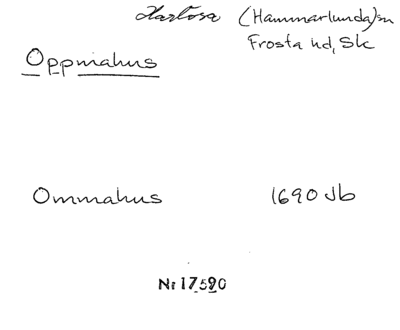 Harlösa (Hammarlunda)sn
Frosta hd, Sk
Oppmahus
Ommahus 1690 Jb
Nr 17590